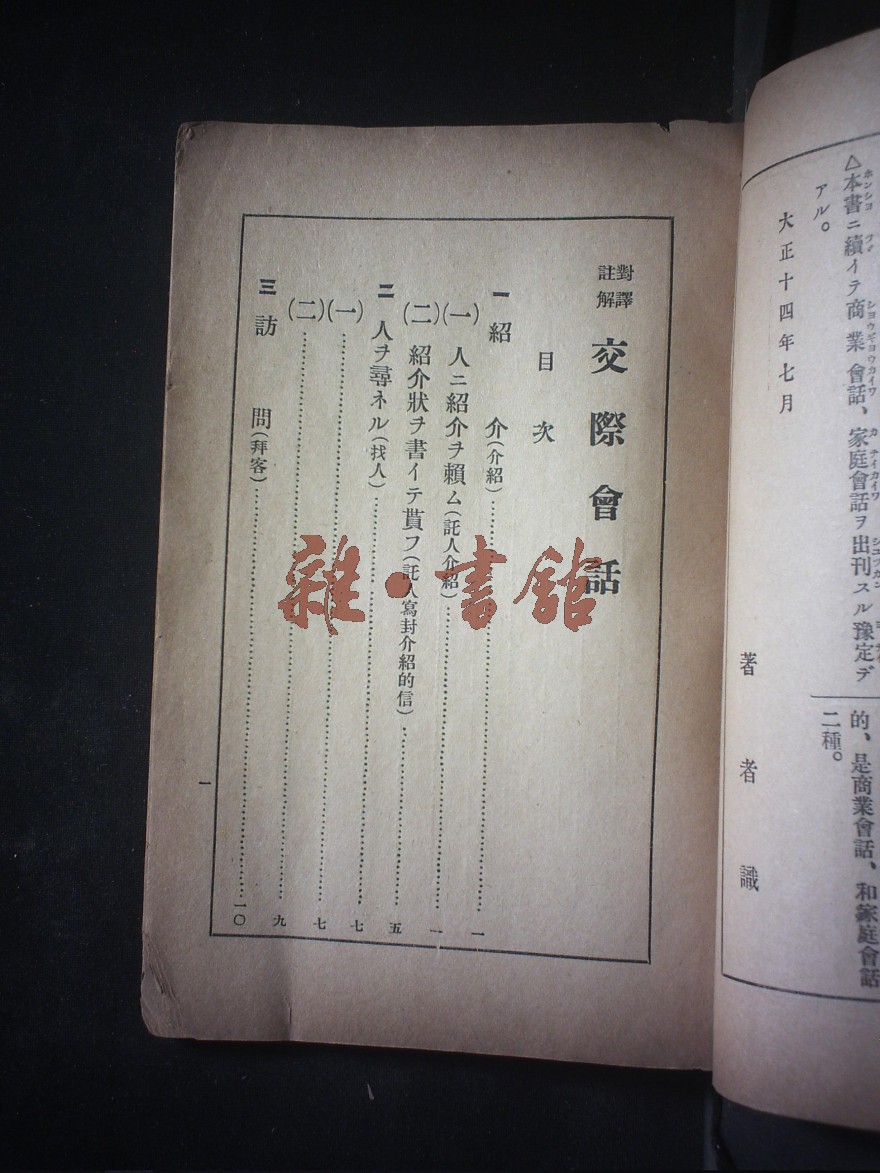 △本書ニ續イテ商業會話、家庭會話ヲ出刊スル豫定デ
アル。
的、是商業會話、和家庭會話
二種。
大正十四年七月
著者識
對譯
註解
交際會話
目次
一 紹介(介紹)……一
(一) 人ニ紹介ヲ賴ム(託人介紹)……一
(二) 紹介狀ヲ書イテ貰フ(託人寫封介紹的信)……五
二 人ヲ尋ネル(找人)……七
(一)……七
(二)……九
三 訪問(拜客)……一〇
一
雜·書館